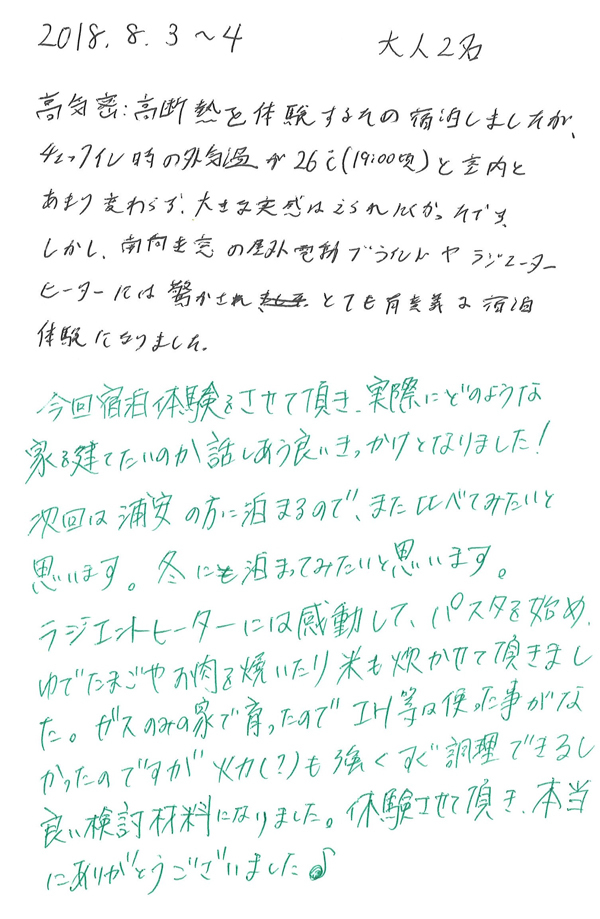 2018. 8. 3 〜4
大人2名
高気密:高断熱を体験するための宿泊しましたが、
チェックイン時の外気温が26℃(19:00頃)と室内と
あまり変わらず、大きな実感はえられにくかったです。
しかし、南向き窓の屋外電動ブラインドやラジエーター
ヒーターには驚かされ、とても有意義な宿泊
体験になりました。
今回宿泊体験をさせて頂き、実際にどのような
家を建てたいのか話しあう良いきっかけとなりました!
次回は浦安の方に泊まるので、また比べてみたいと
思います。冬にも泊まってみたいと思います。
ラジエントヒーターには感動して、パスタを始め、
ゆでたまごやお肉を焼いたり米も炊かせて頂きまし
た。ガスのみの家で育ったのでIH等は使った事がな
かったのですが火力(?)も強くすぐ調理できるし
良い検討材料になりました。体験させて頂き、本当
にありがとうございました♪